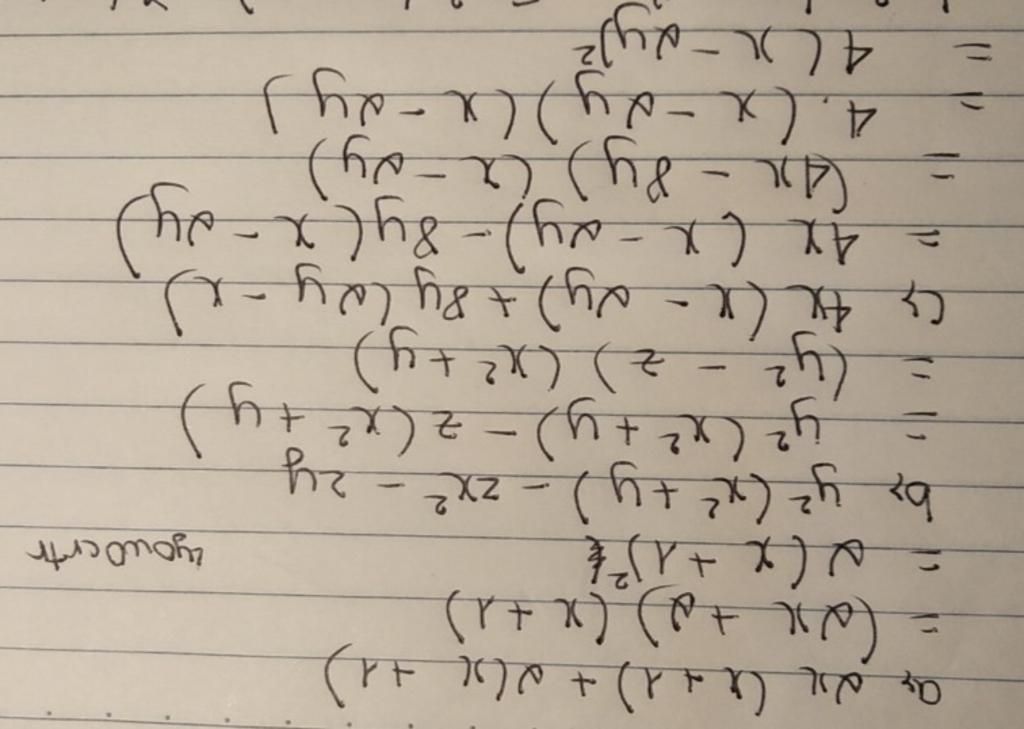 a, 2x (x + 1) + 2(x + 1)
= (2x + 2) (x + 1)
= 2 (x + 1)²
b, y² (x² + y) - zx² - zy
= y² (x² + y) - z (x² + y)
= (y² - z) (x² + y)
c, 4x (x - 2y) + 8y (2y - x)
= 4x (x - 2y) - 8y (x - 2y)
= (4x - 8y) (x - 2y)
= 4. (x - 2y) (x - 2y)
= 4 (x - 2y)²